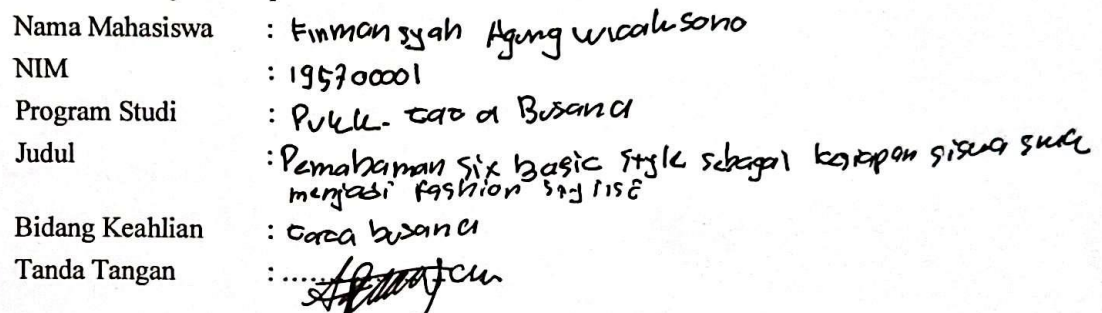 Nama Mahasiswa : Firmansyah Agung wicaksono
NIM : 195700001
Program Studi : PVKK. tata Busana
Judul : Pemahaman six basic style sebagai kesiapan siswa SMK
menjadi fashion stylist
Bidang Keahlian : tata busana
Tanda Tangan :......